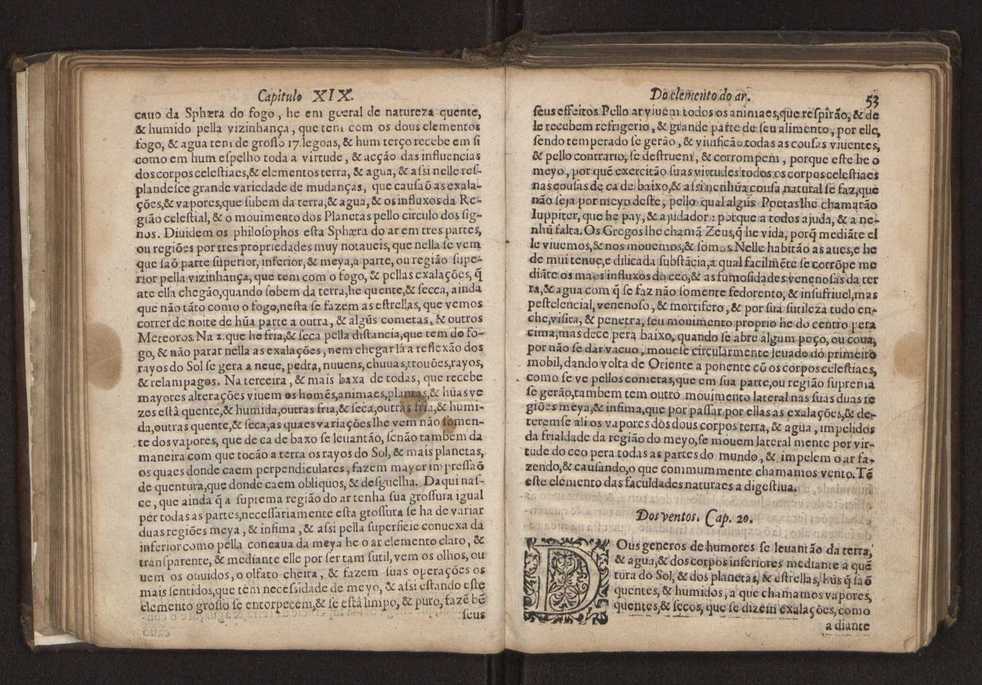 Capitulo XIX.
cauo da Sphæra do fogo, he em gèeral de natureza quente,
& humido pella vizinhança, que tem com os dous elementos
fogo, & agua tem de grosso 17. legoas, & hum terço recebe em si
como em hum espelho toda a virtude, & acção das influencias
dos corpos celestiaes, & elementos terra, & agua, & assi nelle res-
plandesce grande variedade de mudanças, que causaõ as exala-
ções, & vapores, que subem da terra, & agua, & os influxos da Re-
gião celestial, & o mouimento dos Planetas pello circulo dos sig-
nos. Diuidem os philosophos esta Sphæra do ar em tres partes,
ou regiões por tres propriedades muy notaueis, que nella se vem
que saõ parte superior, inferior, & meya, a parte, ou região supe-
rior pella vizinhãça, que tem com o fogo, & pellas exalações, q̃
ate ella chegão, quando sobem da terra, he quente, & secca, ainda
que não tãto como o fogo, nesta se fazem as estrellas, que vemos
correr de noite de hũa parte a outra, & algũs cometas, & outros
Meteoros. Na 2. que he fria, & seca pella distancia, que tem do fo-
go, & não parar nella as exalações, nem chegar lá a reflexão dos
rayos do Sol se gera a neue, pedra, nuuens, chuuas, trouões, rayos,
& relampagos. Na terceira, & mais baxa de todas, que recebe
mayores alterações viuem os homẽs, animaes, plantas, & hũas ve
zes està quente, & humida, outras fria, & seca, outras fria, & humi-
da, outras quente, & seca, as quaes variações lhe vem não somen-
te dos vapores, que de ca de baxo se leuantão, senão tambem da
maneira com que tocão a terra os rayos do Sol, & mais planetas,
os quaes donde caem perpendiculares, fazem mayor impressaõ
de quentura, que donde caem obliquos, & desguelha. Daqui nas-
ce, que ainda q̃ a suprema região do ar tenha sua grossura igual
per todas as partes, necessariamente esta grossura se ha de variar
duas regiões meya, & infima, & assi pella superficie conuexa da
inferior como pella concaua da meya he o ar elemento claro, &
transparente, & mediante elle por ser tam sutil, vem os olhos, ou
uem os ouuidos, o olfato cheira, & fazem suas operações os
mais sentidos, que tem necessidade de meyo, & assi estando este
elemento grosso se entorpecem, & se està limpo, & puro, fazẽ bẽ
seus
Do elemento do ar.
53
seus effeitos Pello ar viuem todos os animaes, que respirão, & de
le recebem refrigerio, & grande parte de seu alimento, por elle,
sendo temperado se gerão, & viuificão todas as cousas viuentes,
& pello contrario, se destruem, & corrompem, porque este he o
meyo, por quẽ exercitão suas virtudes todos os corpos celestiaes
nas cousas de ca de baixo, & assi nenhũa cousa natural se faz, que
não seja por meyo deste, pello qual algũs Poetas lhe chamarão
Iuppiter, que he pay, & ajudador: porque a todos ajuda, & a ne-
nhũ falta. Os Gregos lhe chamã Zeus, q̃ he vida, porq̃ mediãte el
le viuemos, & nos mouemos, & somos. Nelle habitão as aues, e he
de mui tenue, e dilicada substãcia, a qual facilmẽte se corrõpe me
diãte os maos influxos do ceo, & as fumosidades venenosas da ter
ra, & agua com q̃ se faz não somente fedorento, & insufriuel, mas
pestelencial, venenoso, & mortifero, & por sua sutileza tudo en-
che, visita, & penetra, seu mouimento proprio he do centro pera
cima, mas dece pera baixo, quando se abre algum poço, ou coua,
por não se dar vacuo, mouese circularmente leuado do primeiro
mobil, dando volta de Oriente a ponente cõ os corpos celestiaes,
como se ve pellos cometas, que em sua parte, ou região suprema
se gerão, tambem tem outro mouimento lateral nas suas duas re
giões meya, & infima, que por passar por ellas as exalações, & de-
teremse ali os vapores dos dous corpos terra, & agua, impelidos
da frialdade da região do meyo, se mouem lateral mente por vir-
tude do ceo pera todas as partes do mundo, & impelem o ar fa-
zendo, & causando, o que commummente chamamos vento. Tẽ
este elemento das faculdades naturaes a digestiua.
Dos ventos. Cap. 20.
DOus generos de humores se leuantão da terra,
& agua, & dos corpos inferiores mediante a quẽ
tura do Sol, & dos planetas, & estrellas, hũs q̃ saõ
quentes, & humidos, a que chamamos vapores,
quentes, & secos, que se dizem exalações, como
a diante